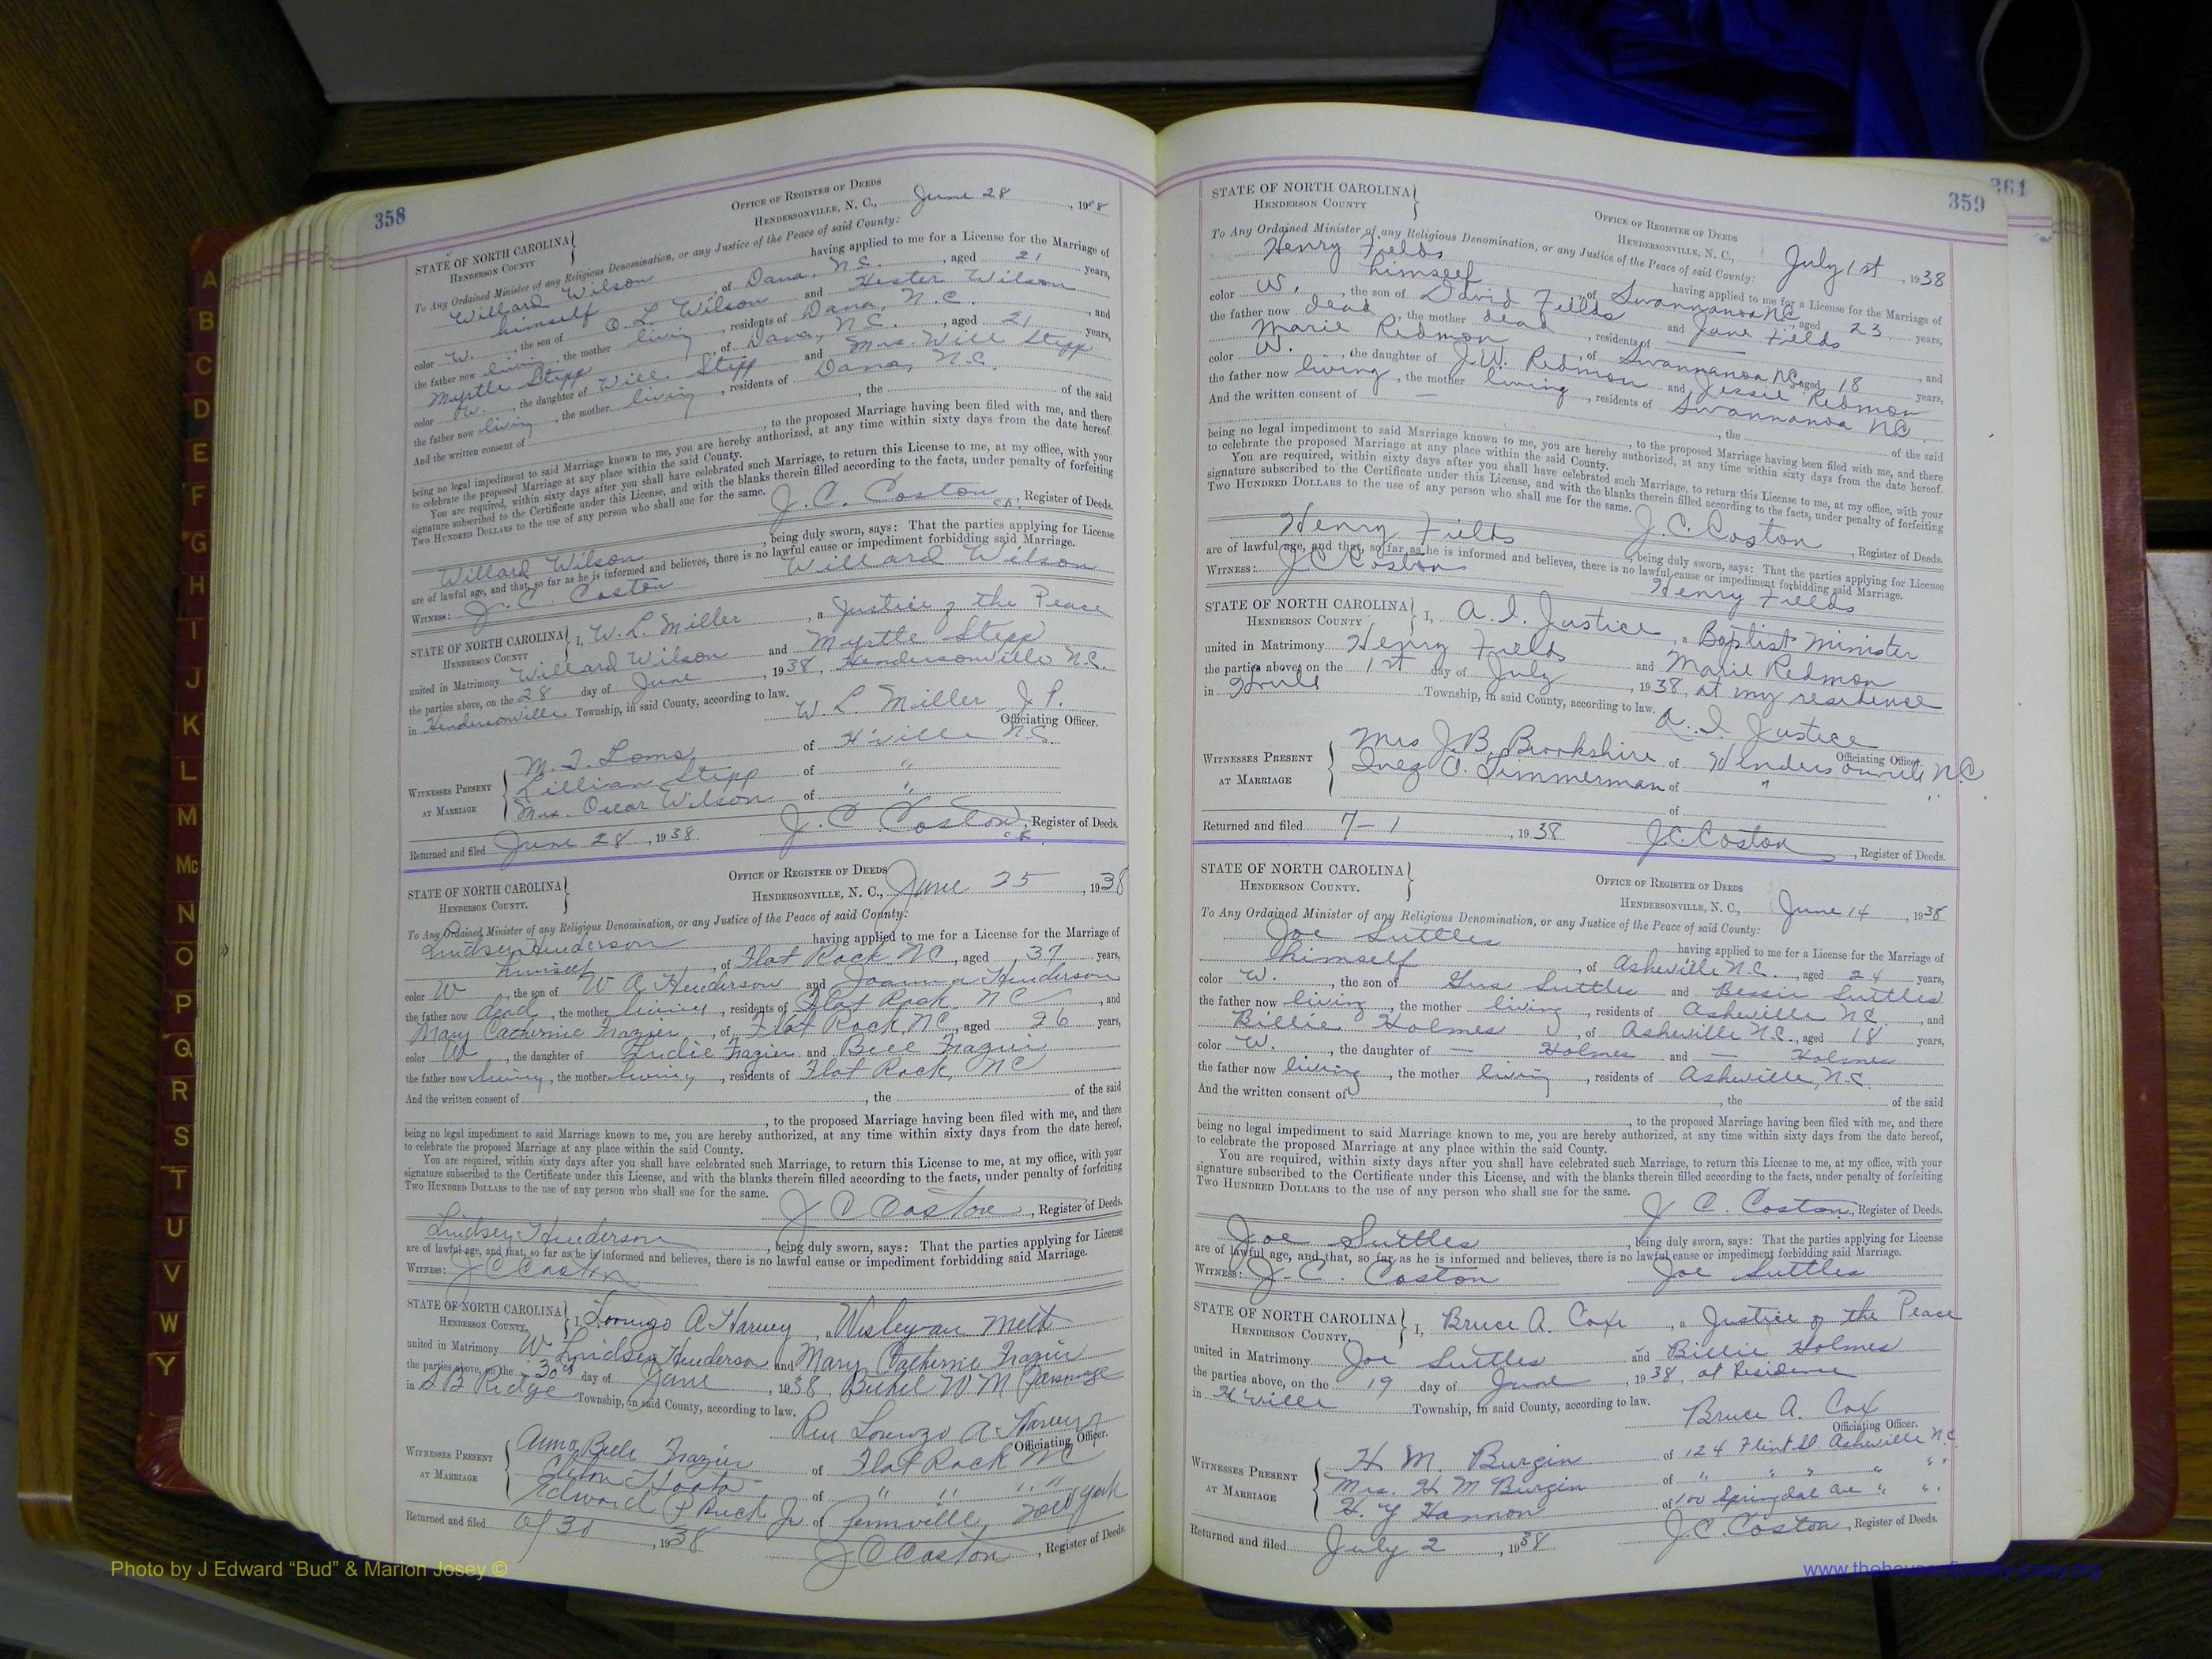 358
STATE OF NORTH CAROLINA
HENDERSON COUNTY
OFFICE OF REGISTER OF DEEDS
HENDERSONVILLE, N. C., June 28, 1938
To Any Ordained Minister of any Religious Denomination, or any Justice of the Peace of said County:
Willard Wilson having applied to me for a License for the Marriage of
himself, of Dana, N.C., aged 21 years,
color W., the son of O. L. Wilson and Hester Wilson
the father now living, the mother living, residents of Dana, N.C., and
Myrtle Stepp, of Dana, N.C., aged 21 years,
color W., the daughter of Will Stepp and Mrs. Will Stepp
the father now living, the mother living, residents of Dana, N.C.
And the written consent of , the of the said
, to the proposed Marriage having been filed with me, and there
being no legal impediment to said Marriage known to me, you are hereby authorized, at any time within sixty days from the date hereof,
to celebrate the proposed Marriage at any place within the said County.
You are required, within sixty days after you shall have celebrated such Marriage, to return this License to me, at my office, with your
signature subscribed to the Certificate under this License, and with the blanks therein filled according to the facts, under penalty of forfeiting
TWO HUNDRED DOLLARS to the use of any person who shall sue for the same.
J. C. Coston, Register of Deeds.
Willard Wilson, being duly sworn, says: That the parties applying for License
are of lawful age, and that, so far as he is informed and believes, there is no lawful cause or impediment forbidding said Marriage.
WITNESS: J. C. Coston Willard Wilson
STATE OF NORTH CAROLINA
HENDERSON COUNTY
I, W. L. Miller, a Justice of the Peace
united in Matrimony Willard Wilson and Myrtle Stepp
the parties above, on the 28 day of June, 1938, Hendersonville N.C.
in Hendersonville Township, in said County, according to law.
W. L. Miller J. P.
Officiating Officer.
WITNESSES PRESENT
AT MARRIAGE
M. T. of H'ville N.C.
Lillian Stepp of "
Mrs. Oscar Wilson of "
Returned and filed June 28, 1938 J. C. Coston, Register of Deeds.
STATE OF NORTH CAROLINA
HENDERSON COUNTY.
OFFICE OF REGISTER OF DEEDS
HENDERSONVILLE, N. C., June 25, 1938
To Any Ordained Minister of any Religious Denomination, or any Justice of the Peace of said County:
Lindsey Henderson having applied to me for a License for the Marriage of
himself, of Flat Rock, NC, aged 37 years,
color W, the son of W A Henderson and Joanna Henderson
the father now dead, the mother living, residents of Flat Rock NC, and
Mary Catherine Frazier, of Flat Rock, NC, aged 26 years,
color W, the daughter of Frazier and Bell Frazier
the father now living, the mother living, residents of Flat Rock, NC
And the written consent of , the of the said
, to the proposed Marriage having been filed with me, and there
being no legal impediment to said Marriage known to me, you are hereby authorized, at any time within sixty days from the date hereof,
to celebrate the proposed Marriage at any place within the said County.
You are required, within sixty days after you shall have celebrated such Marriage, to return this License to me, at my office, with your
signature subscribed to the Certificate under this License, and with the blanks therein filled according to the facts, under penalty of forfeiting
TWO HUNDRED DOLLARS to the use of any person who shall sue for the same.
J C Coston, Register of Deeds.
Lindsey Henderson, being duly sworn, says: That the parties applying for License
are of lawful age, and that, so far as he is informed and believes, there is no lawful cause or impediment forbidding said Marriage.
WITNESS: J C Coston
STATE OF NORTH CAROLINA
HENDERSON COUNTY,
I, Lorenzo A Harvey, a Wesleyan Meth
united in Matrimony W Lindsey Henderson and Mary Catherine Frazier
the parties above, on the 30th day of June, 1938, Bethel W M Parsonage
in B Ridge Township, in said County, according to law.
Rev Lorenzo A Harvey
Officiating Officer.
WITNESSES PRESENT
AT MARRIAGE
Anna Belle Frazier of Flat Rock NC
of " " " "
Edward P Jr of New York
Returned and filed 6/30, 1938 J C Coston, Register of Deeds.
361
359
STATE OF NORTH CAROLINA
HENDERSON COUNTY
OFFICE OF REGISTER OF DEEDS
HENDERSONVILLE, N. C., July 1st, 1938
To Any Ordained Minister of any Religious Denomination, or any Justice of the Peace of said County:
Henry Fields having applied to me for a License for the Marriage of
himself, of Swannanoa NC, aged 23 years,
color W., the son of David Fields and Jane Fields
the father now dead, the mother dead, residents of , and
Marie Redmon, of Swannanoa NC aged 18 years,
color W., the daughter of J.W. Redmon and Jessie Redmon
the father now living, the mother living, residents of Swannanoa NC
And the written consent of — , the of the said
, to the proposed Marriage having been filed with me, and there
being no legal impediment to said Marriage known to me, you are hereby authorized, at any time within sixty days from the date hereof,
to celebrate the proposed Marriage at any place within the said County.
You are required, within sixty days after you shall have celebrated such Marriage, to return this License to me, at my office, with your
signature subscribed to the Certificate under this License, and with the blanks therein filled according to the facts, under penalty of forfeiting
TWO HUNDRED DOLLARS to the use of any person who shall sue for the same.
J.C. Coston, Register of Deeds.
Henry Fields, being duly sworn, says: That the parties applying for License
are of lawful age, and that, so far as he is informed and believes, there is no lawful cause or impediment forbidding said Marriage.
WITNESS: J C Coston Henry Fields
STATE OF NORTH CAROLINA
HENDERSON COUNTY
I, A. I. Justice, a Baptist Minister
united in Matrimony Henry Fields and Marie Redmon
the parties above, on the 1st day of July, 1938, at my residence
in Township, in said County, according to law.
A. I Justice
Officiating Officer.
WITNESSES PRESENT
AT MARRIAGE
Mrs J.B. Brookshire of Hendersonville NC
Inez O. Timmerman of "
of
Returned and filed 7-1, 1938 J.C. Coston, Register of Deeds.
STATE OF NORTH CAROLINA
HENDERSON COUNTY.
OFFICE OF REGISTER OF DEEDS
HENDERSONVILLE, N. C., June 14, 1938
To Any Ordained Minister of any Religious Denomination, or any Justice of the Peace of said County:
Joe Suttles having applied to me for a License for the Marriage of
himself, of Asheville N.C., aged 24 years,
color W., the son of Gus Suttles and Bessie Suttles
the father now living, the mother living, residents of Asheville N.C., and
Billie Holmes, of Asheville N.C., aged 18 years,
color W., the daughter of — Holmes and — Holmes
the father now living, the mother living, residents of Asheville, N.C.
And the written consent of , the of the said
, to the proposed Marriage having been filed with me, and there
being no legal impediment to said Marriage known to me, you are hereby authorized, at any time within sixty days from the date hereof,
to celebrate the proposed Marriage at any place within the said County.
You are required, within sixty days after you shall have celebrated such Marriage, to return this License to me, at my office, with your
signature subscribed to the Certificate under this License, and with the blanks therein filled according to the facts, under penalty of forfeiting
TWO HUNDRED DOLLARS to the use of any person who shall sue for the same.
J. C. Coston, Register of Deeds.
Joe Suttles, being duly sworn, says: That the parties applying for License
are of lawful age, and that, so far as he is informed and believes, there is no lawful cause or impediment forbidding said Marriage.
WITNESS: J. C. Coston Joe Suttles
STATE OF NORTH CAROLINA
HENDERSON COUNTY,
I, Bruce A. Cox, a Justice of the Peace
united in Matrimony Joe Suttles and Billie Holmes
the parties above, on the 19 day of June, 1938, at Residence
in H'ville Township, in said County, according to law.
Bruce A. Cox
Officiating Officer.
WITNESSES PRESENT
AT MARRIAGE
H M Burgin of 124 Flint St. Asheville N.C.
Mrs. H M Burgin of " " " " "
H. Y Hannon of 100 Springdale ave " "
Returned and filed July 2, 1938 J C Coston, Register of Deeds.
A
B
C
D
E
F
G
H
I
J
K
L
M
Mc
N
O
P
Q
R
S
T
U
V
W
Y
Photo by J Edward “Bud” & Marion Josey ©